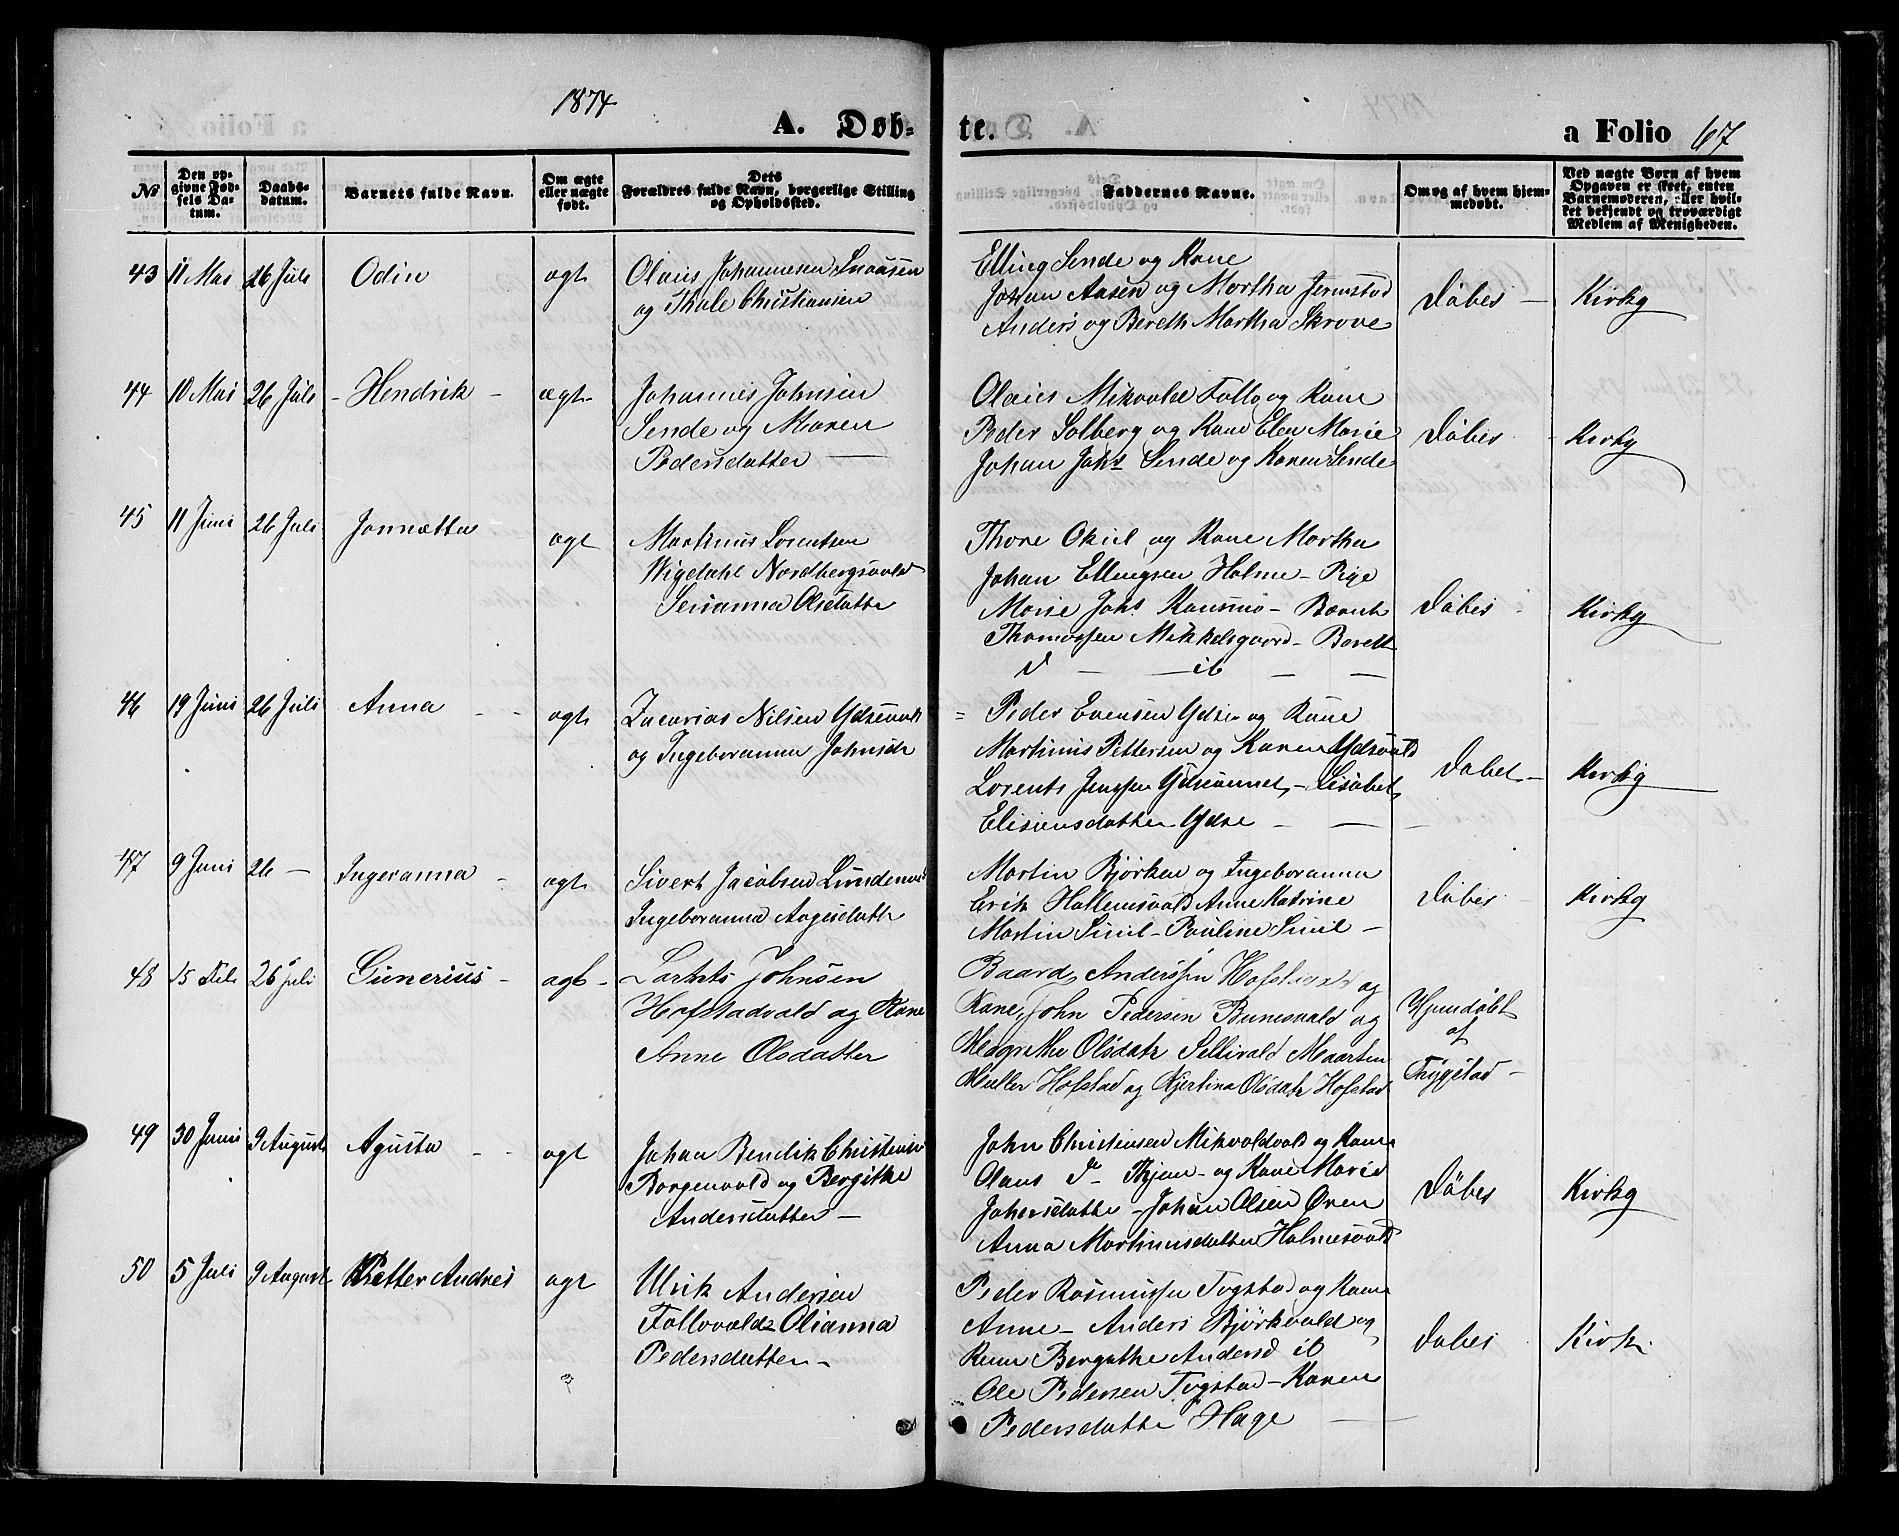 1874
A. Døb-
te.
a Folio 67
No
Den op-
givne Fød-
sels Da-
tum.
Daabs-
datum.
Barnets fulde Navn.
Om ægte
eller uægte
født.
Dets
Forældres fulde Navn, borgerlige Stilling
og Opholdssted.
Faddernes Navne.
Om og af hvem hjem-
medøbt.
Ved uægte Børn af hvem
Opgaven er skeet, enten
Barnemoderen, eller hvil-
ket bekjendt og troværdigt
Medlem af Menigheden.
43 11 Mai 26 Juli Odin ægt
Olaus Johannesen Snaasen
og Thale Christiansen
Elling Sende og Kone
Johan Aasen og Martha Jermstad
Anders og Bereth Martha Skrove
Døbes - Kirky
44 10 Mai 26 Juli - Hendrik - ægt-
Johannes Johnsen
Sende og Maren
Pedersdatter -
Olaus Mikvold Follo og Kone
Peder Solberg og Kone Elen Marie
Johan Johs Sende og Karen Sende
Døbes - Kirky
45 11 Juni 26 Juli Jonnætta ægt
Martinus Lorentsen
Wigdahl Nordbergsvald
Serianna Olsdatter
Thore Okul og Kone Martha
Johan Ellingsen Holme - Pige
Marie Johs Kausmo - Bærnt
Thomassen Mikkelsgaard - Bereth
d - ib - -
Døbes - Kirky
46 19 Juni 26 Juli Anna - - ægt
Zacarias Nilsen Ydsevald
og Ingeboranna Johnsdr
= Peder Evensen Ydse og Kone
Martinus Pettersen og Karen Ydsvald
Lorents Jenssen Ydsevannet - Lisabet
Elisiensdatter Ydse - - -
Døbet - Kirkig
47 9 Juni 26 - Ingeranna - ægt
Sivert Jacobsen Lundemo
Ingeboranna Aagesdatter
Martin Bjørken og Ingeboranna
Erik Hallemsvald Anne Katrine
Martin Suul - Pauline Suul -
Døbes - Kirky
48 15 Feb 26 Juli Gunerius - ægt -
Johnsen
Hofstadvald og Kone
Anne Olsdatter
Baard Anderssen Hofstad og
Kone, John Pedersen Bunesvald og
Magrethe Olsdatr Seltivald Maarten
Muller Hofstad og Kjerstina Olsdatr Hofstad
Hjemdøbt
af
Trygstad -
49 30 Juni 9 August Agusta - - ægt
Johan Bendik Christensen
Borgenvald og Bergithe
Andersdatter -
John Christensen Mikvoldvald og Kone
Olaus Do - og Kone Marie
Johersdatter - Johan Olsen Øren
Anna Martinusdatter Holmesvald
Døbes Kirky
50 5 Juli 9 August Petter Andrei ægt
Ulrik Andersen
Follovald Olianna
Pedersdatter -
Peder Rasmussen Togstad og Kone
Anne - Anders Bjørkvald og
Kone Bergithe Andersd ib
Ole Pedersen Togstad - Karen
Pedersdatter Hage -
Døbes Kirk.